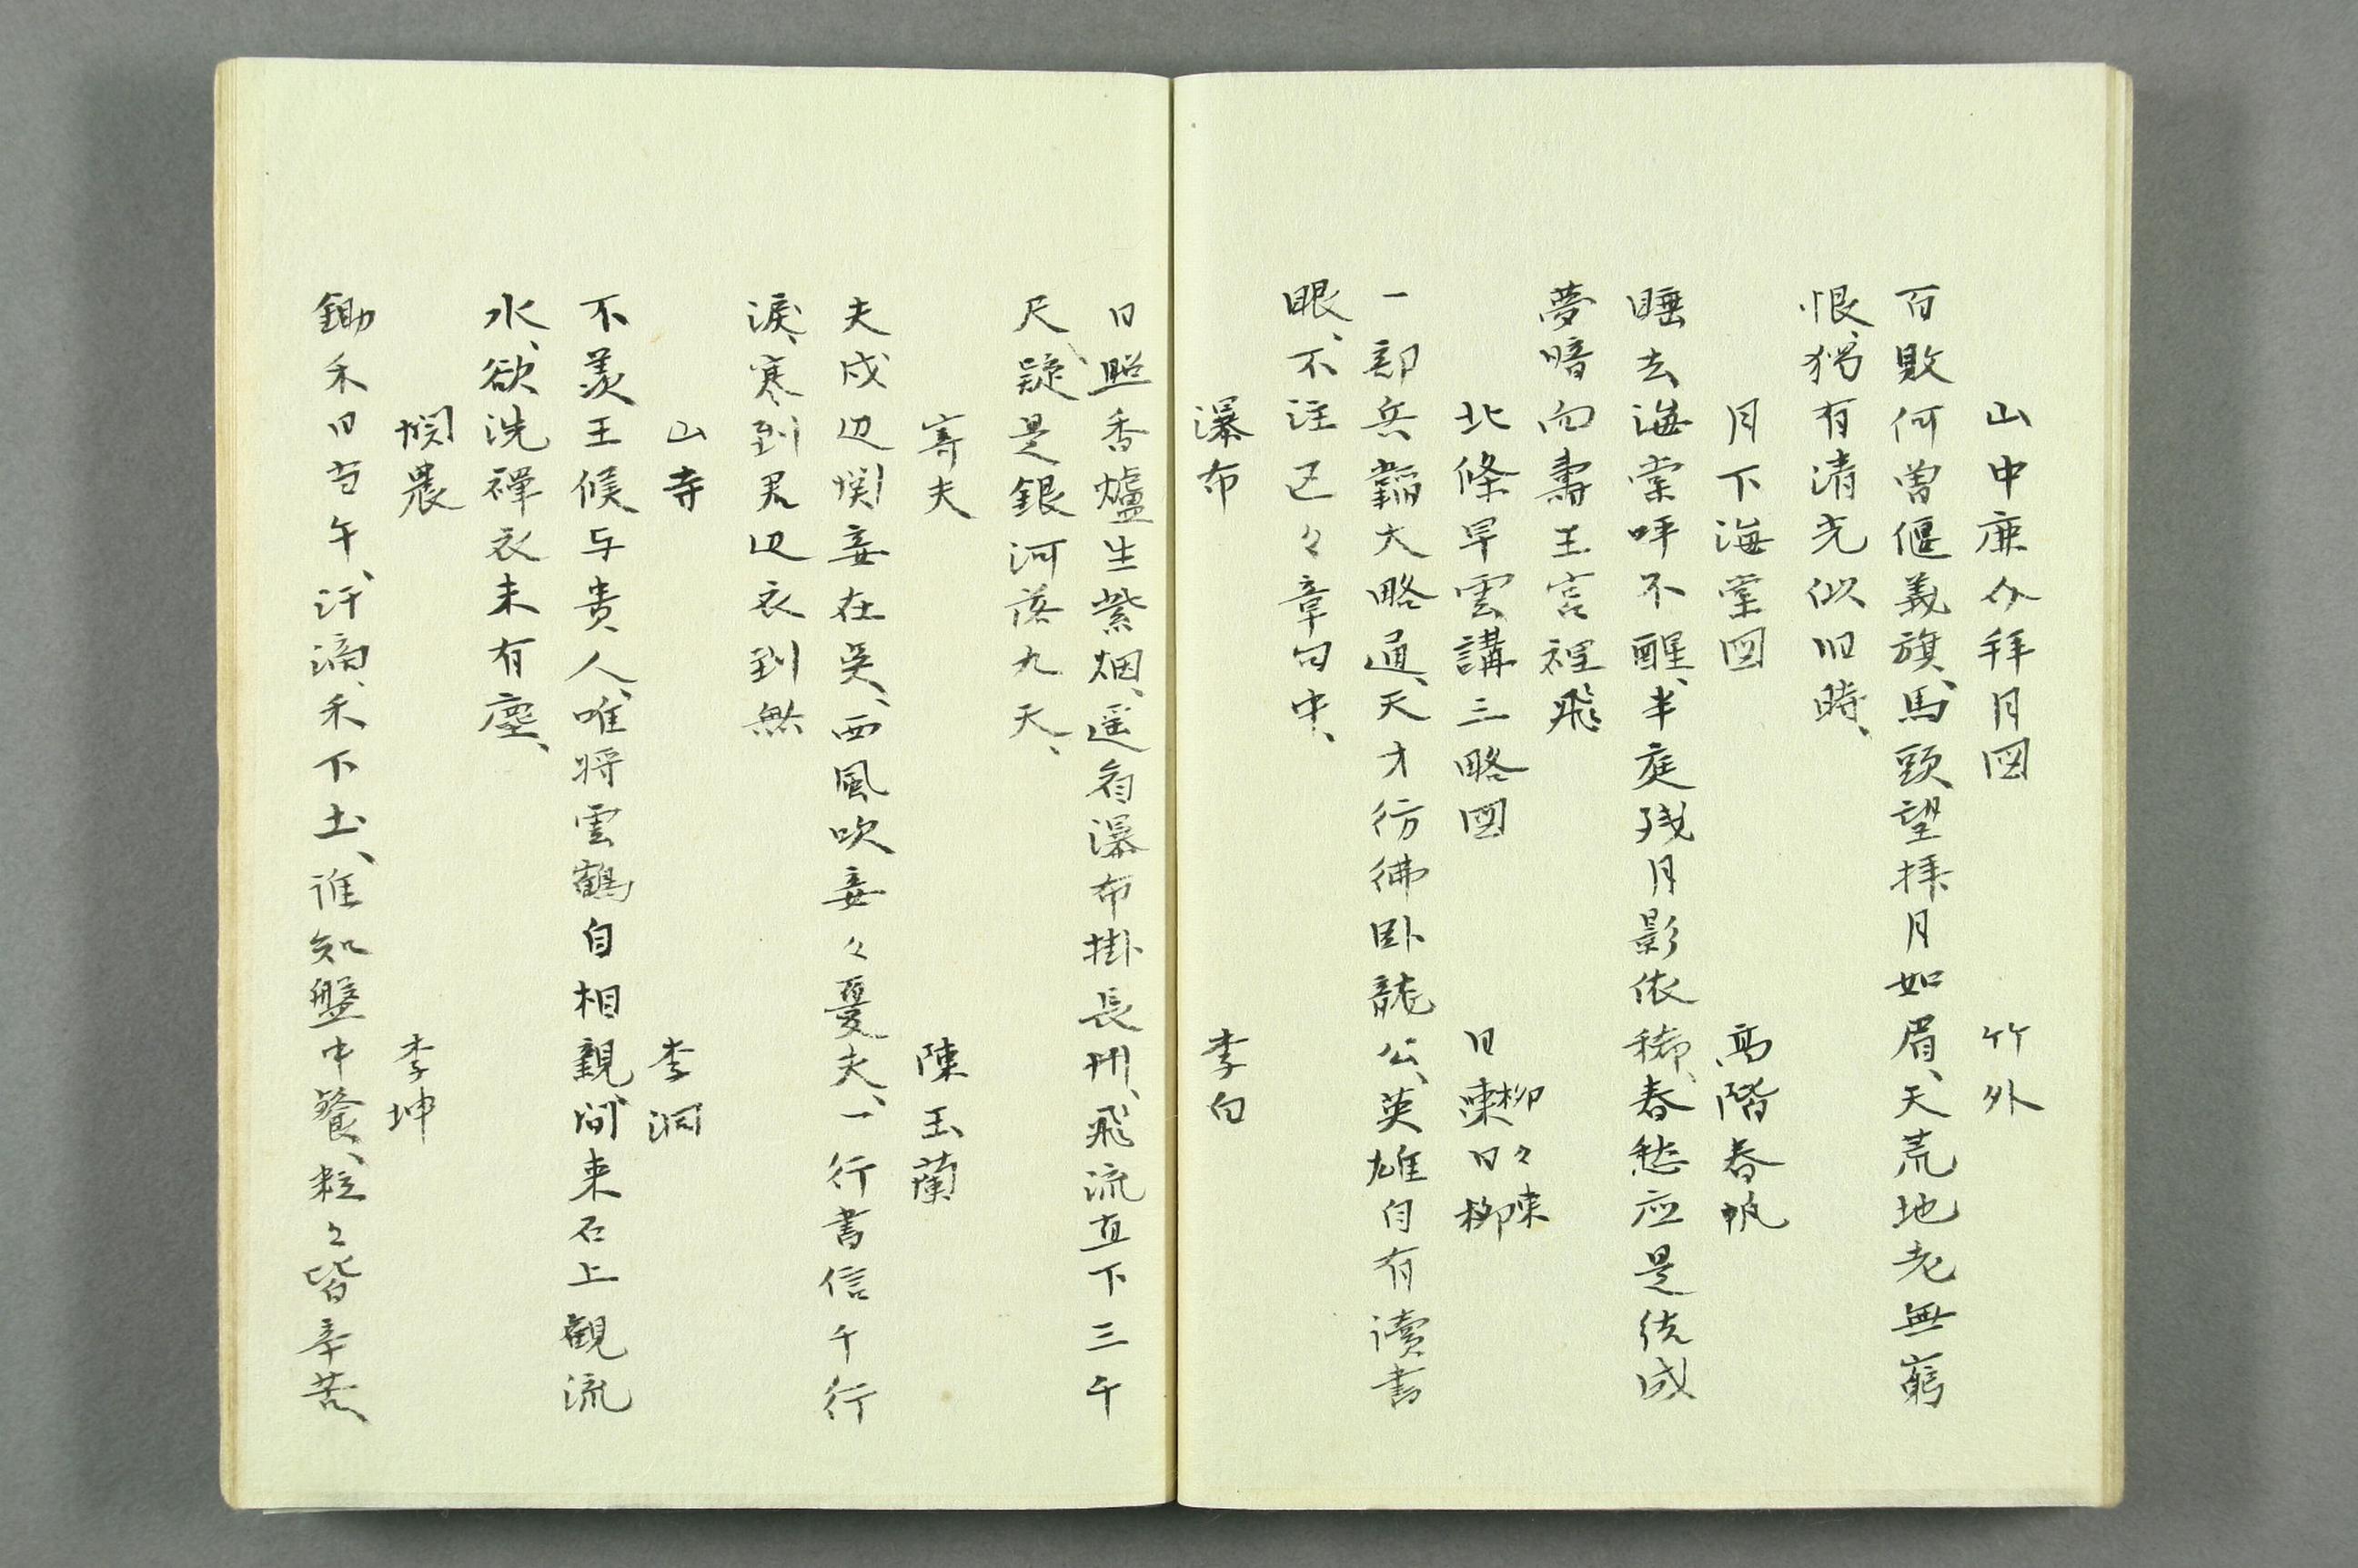 山中鹿介拝月図　竹外
百敗何曽偃義旗、馬頭望拝月如眉、天荒地老無窮
恨、猶有清光似旧時、
月下海棠図　高階春帆
睡去海棠呼不醒、半庭残月影依稀、春愁应是佐成
夢暗向壽王宮裡飛
北條早雲講三略図　日柳々東　日東日柳
一部兵韜大略通、天才彷彿臥龍公、英雄自有読書
眼、不注区々章句中、
瀑布　李白
日照香爐生紫烟、遥看瀑布掛長川、飛流直下三千
尺、疑是銀河落九天、
寄夫　陳玉蘭
夫戍辺関妾在呉、西風吹妾々憂夫、一行書信千行
涙、寒到君辺衣到無
山寺　李洞
不羨王候与貴人、唯将雲鶴自相親、間来石上観流
水、欲洗禅衣未有塵、
憫農　李坤
鋤禾日当午、汗滴禾下土、誰知盤中餐、粒々皆辛苦、